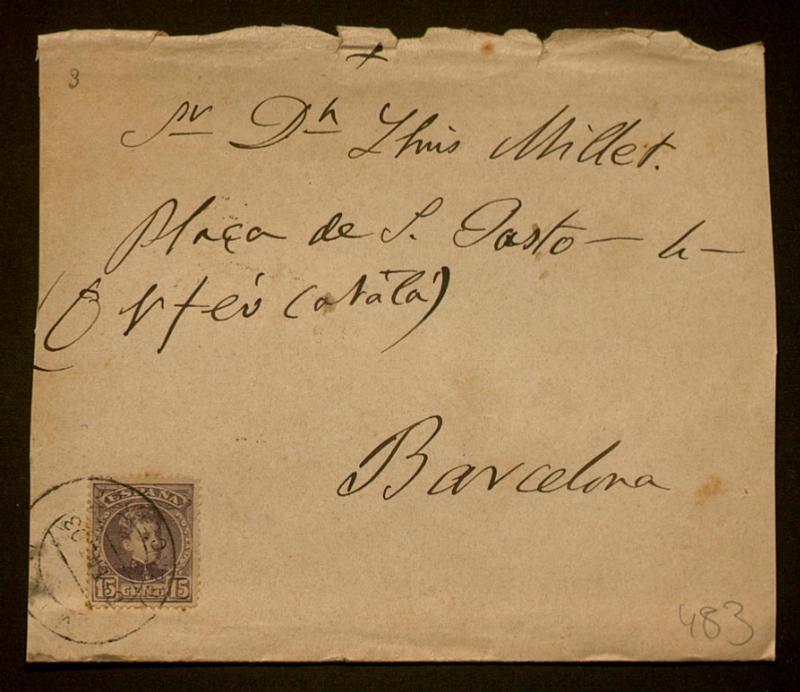 3
+
Sr Dn Lluis Millet.
Plaça de S. Justo — 4 —
(Orfeó Català)
Barcelona
ESPAÑA
15 CENT 15
483